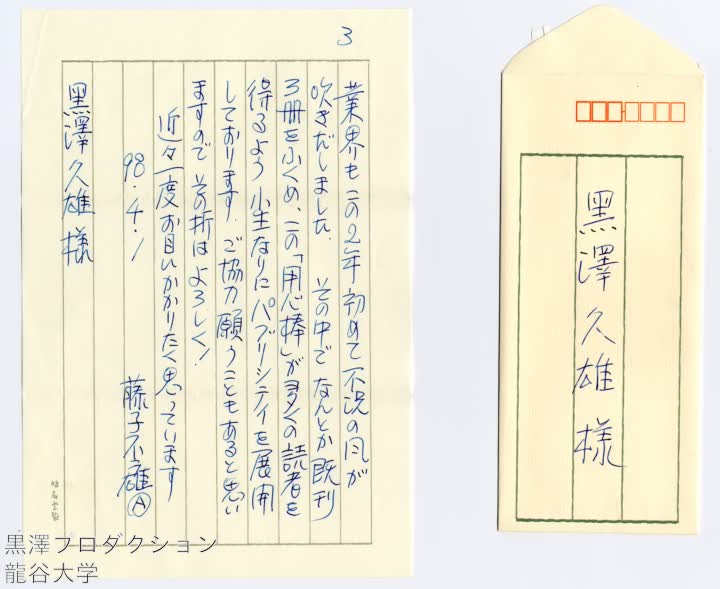 3
業界もこの2年 初めて不況の風が
吹きだしました。 その中で なんとか既刊
3冊をふくめ、この「用心棒」が多くの読者を
得るよう 小生なりに パブリシティを展開
しております。ご協力願うこともあると思い
ますので その折はよろしく!
近々一度お目にかかりたく思っています
98.4.1 藤子不二雄Ⓐ
黑澤久雄様
黑澤久雄様
黒澤プロダクション
龍谷大学